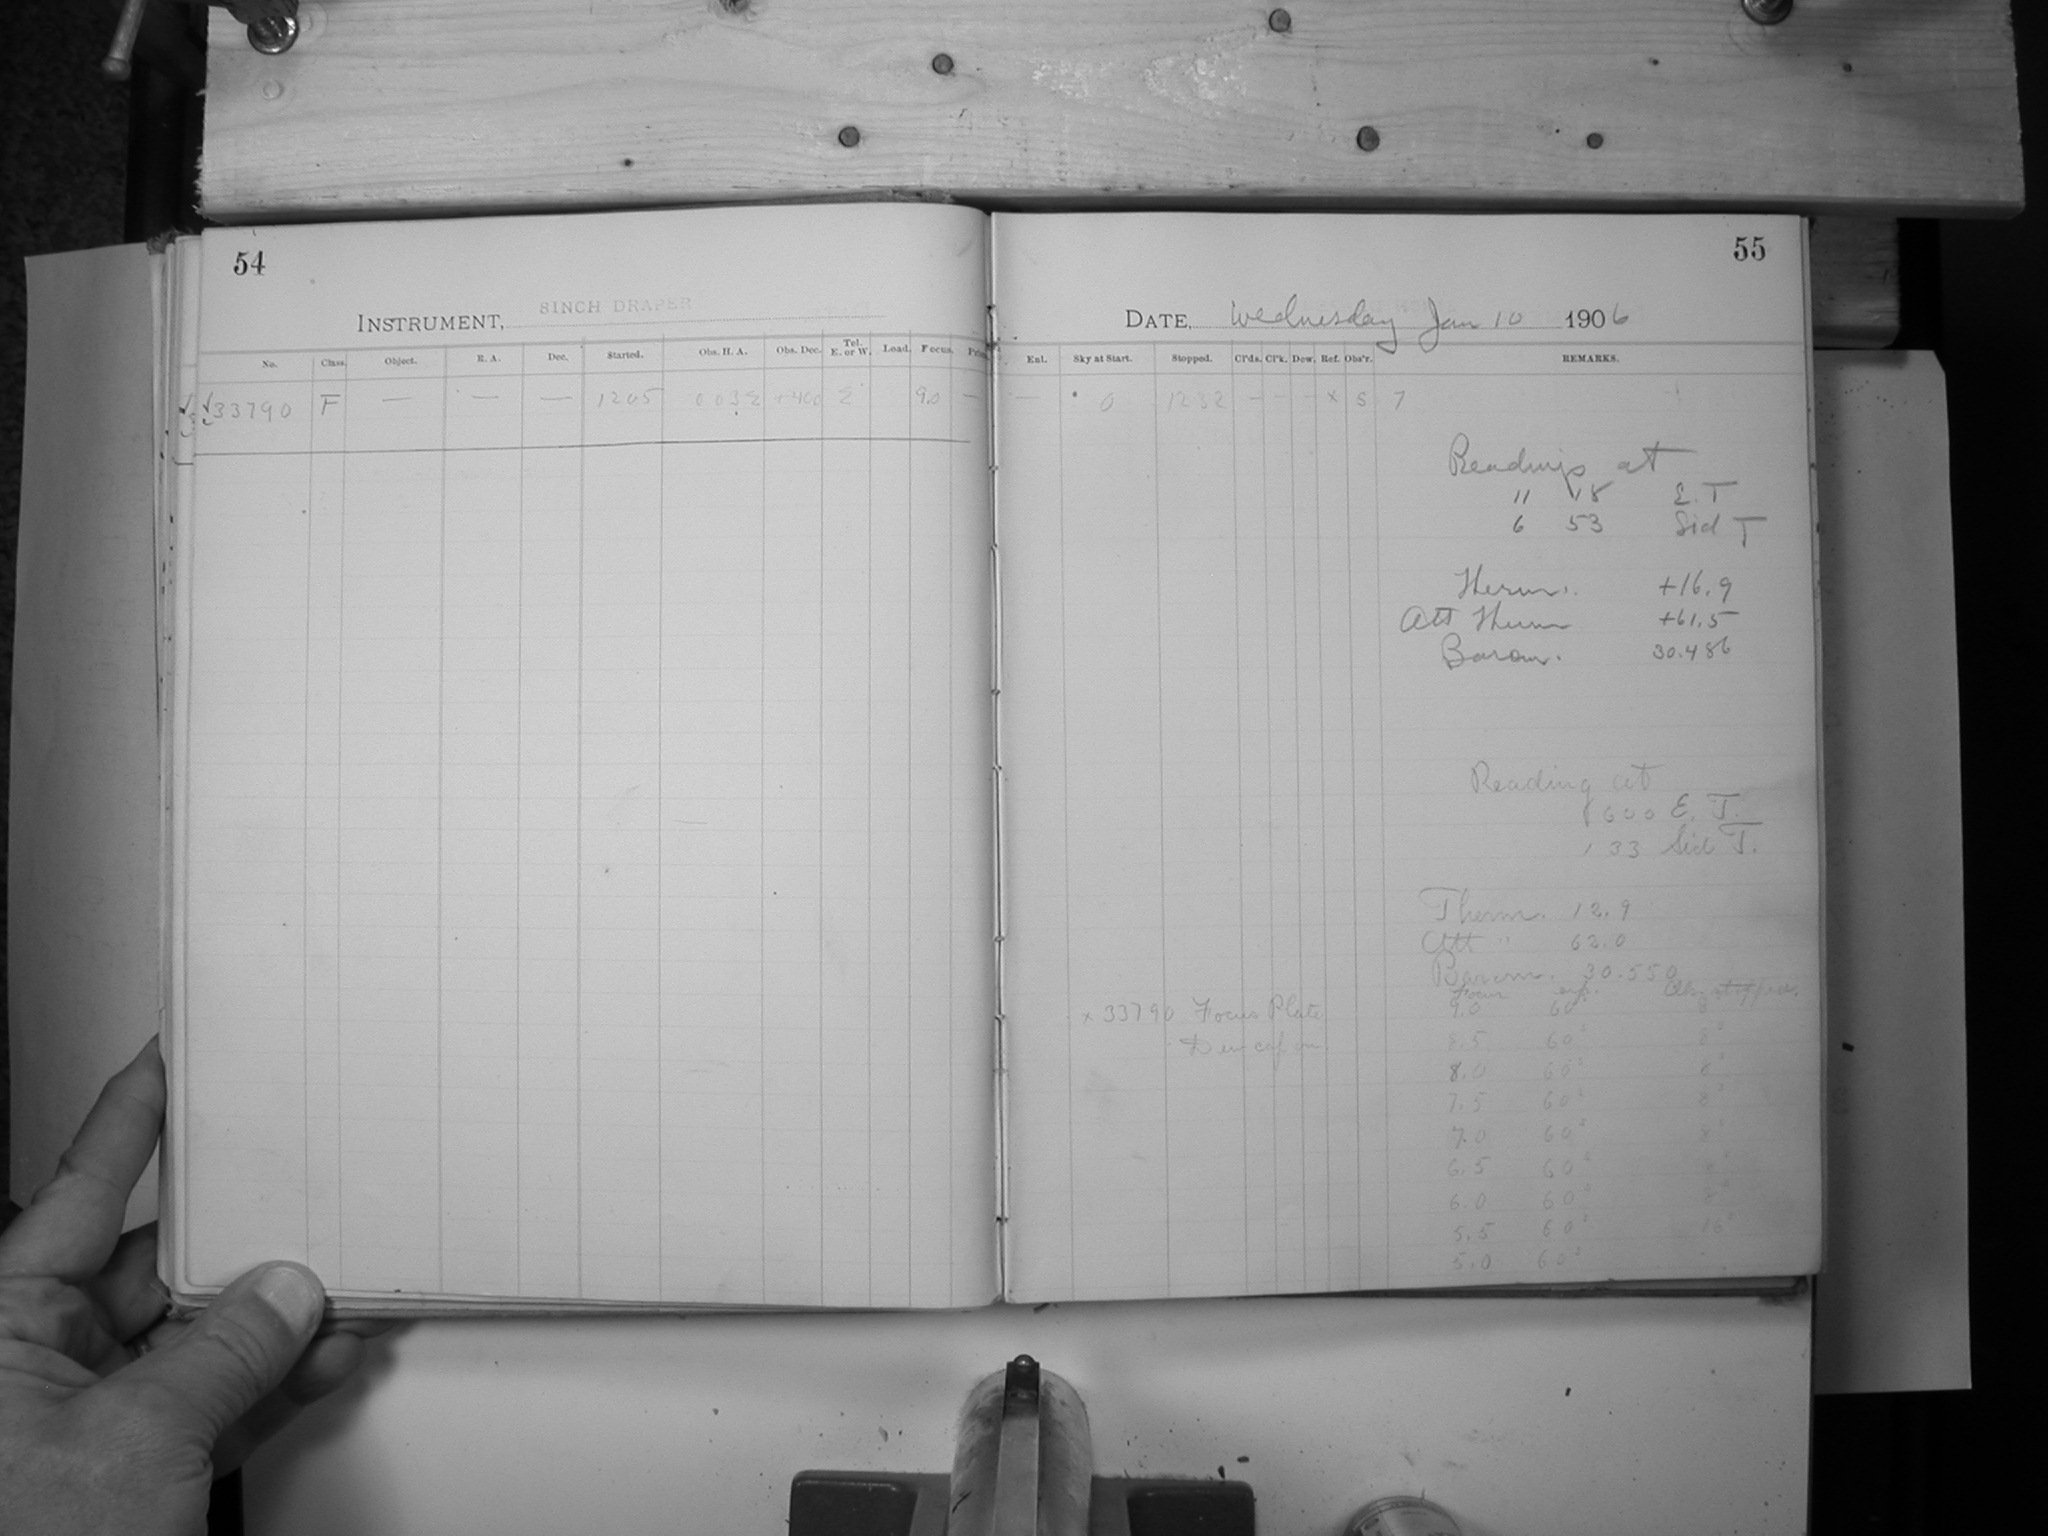 54
INSTRUMENT, 8INCH DRAPER
No. Class. Object. R. A. Dec. Started. Obs. H. A. Obs. Dec. Tel. E. or W. Load. Focus.
✓ 33790 F — — — 1205 003E +400 E 9.0 —
55
DATE, Wednesday Jan 10 1906
Enl. Sky at Start. Stopped. Cl'ds. Cl'k. Dew. Ref. Obs'r. REMARKS.
— 0 1232 — — - x S 7
Readings at
11 18 E. T
6 53 Sid T
Therm. +16.9
Att Therm +61.5
Barom. 30.486
Reading at
1600 E. T.
33 Sid T.
Therm. 12.9
Att " 62.0
Barom. 30.550
Focus exp.
x 33790 Focus Plate
Dewcap on
9.0 60 8
8.5 60s 8s
8.0 60s
7.5 60s 8s
7.0 60s
6.5 60s
6.0 60s
5.5 60s 16s
5.0 60s